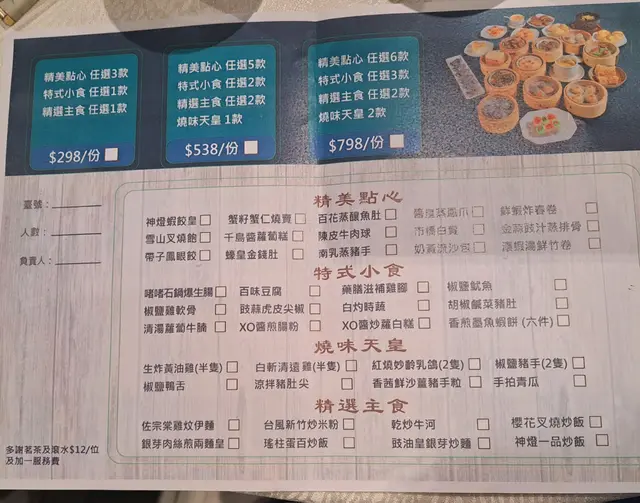 精美點心 任選3款
特式小食 任選1款
精選主食 任選1款
$298/份
精美點心 任選5款
特式小食 任選2款
精選主食 任選2款
燒味天皇 1款
$538/份
精美點心 任選6款
特式小食 任選3款
精選主食 任選2款
燒味天皇 2款
$798/份
臺號：
人數：
負責人：
精美點心
神燈蝦餃皇 蟹籽蟹仁燒賣 百花蒸釀魚肚 醬皇蒸鳳爪 鮮蝦炸春卷
雪山叉燒飽 千島醬蘿蔔糕 陳皮牛肉球 市橋白賣 金蒜豉汁蒸排骨
帶子鳳眼餃 蠔皇金錢肚 南乳蒸豬手 奶黃流沙包 湯鮮竹卷
特式小食
啫啫石鍋爆生腸 百味豆腐 藥膳滋補雞腳 椒鹽魷魚
椒鹽雞軟骨 豉蒜虎皮尖椒 白灼時蔬 胡椒鹹菜豬肚
清湯蘿蔔牛腩 XO醬煎腸粉 XO醬炒蘿白糕 香煎墨魚蝦餅 (六件)
燒味天皇
生炸黃油雞(半隻) 白斬清遠雞(半隻) 紅燒妙齡乳鴿(2隻) 椒鹽豬手(2隻)
椒鹽鴨舌 涼拌豬肚尖 香茜鮮沙薑豬手粒 手拍青瓜
精選主食
佐宗棠雞炆伊麵 台風新竹炒米粉 乾炒牛河 櫻花叉燒炒飯
銀芽肉絲煎兩麵皇 瑤柱蛋白炒飯 豉油皇銀芽炒麵 神燈一品炒飯
多謝茗茶及滾水$12/位
及加一服務費